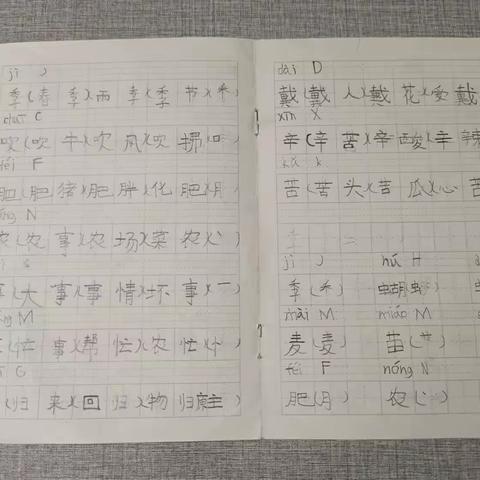 jì J
季(春季)(雨季)(季节)(禾)
chuī C
吹(吹牛)(吹风)(吹扫)(口)
féi F
肥(肥猪)(肥胖)(化肥)(月)
nóng N
农(农事)(农场)(菜农)(心)
事(大事)(事情)(坏事)(一)
M
忙(忙事)(帮忙)(农忙)(忄)
G
(归来)(回归)(物归原主)
dài D
戴(戴人)(戴花)(爱戴
xīn X
辛(辛苦)(辛酸)(辛辣
kǔ k
苦(苦头)(苦瓜)(心苦
jì J hú H
季(禾) 蝴(虫)
mài M miáo M
麦(麦) 苗(艹)
féi F nóng N
肥(月) 农(心)